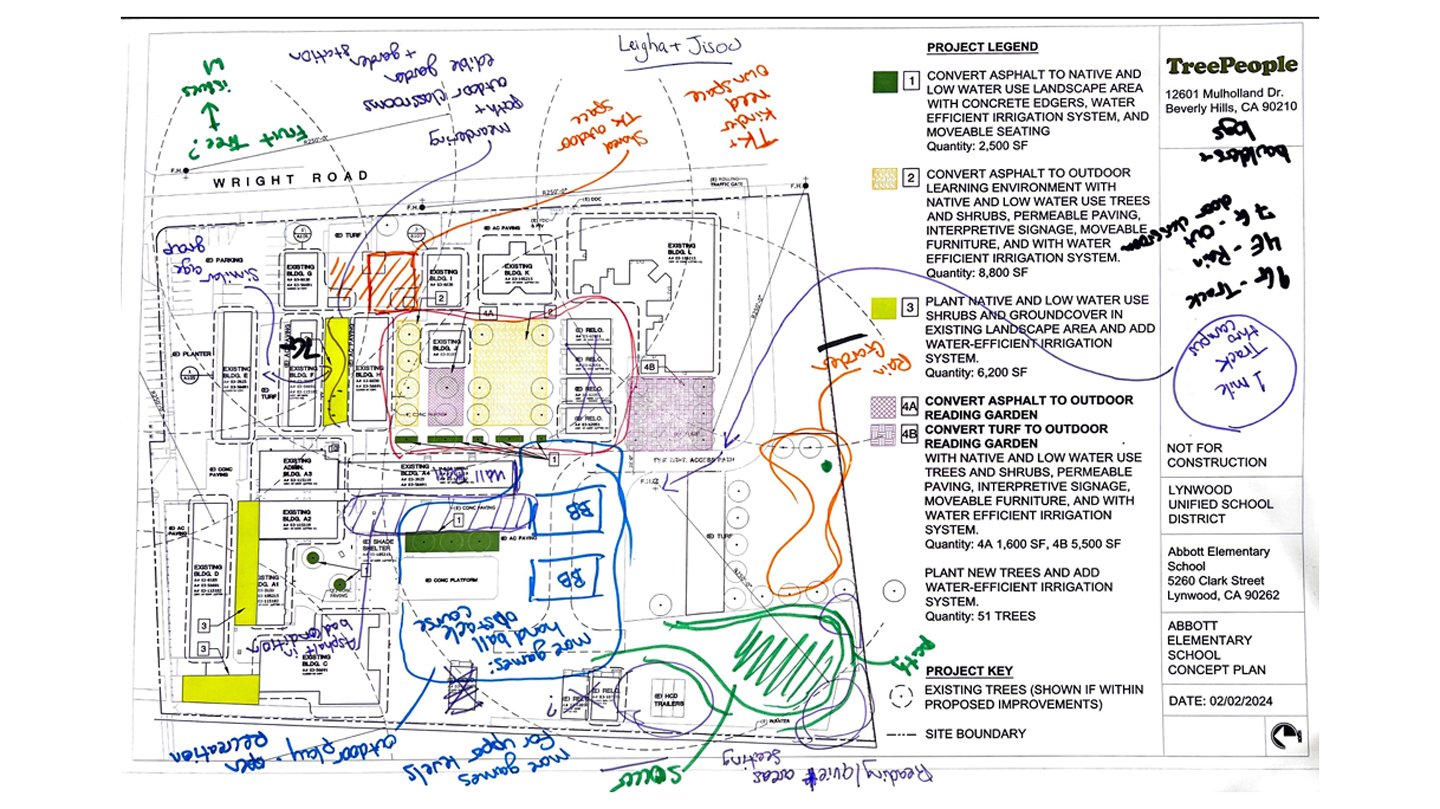 Leigha + Jisoo
edible garden
+ garden
station
outdoor classrooms
path +
meandering
issues
Fruit Tree?
Shared
TK outdoor
space
TK +
kinder
need
own space
WRIGHT ROAD
R250'-0"
R250'-0"
F.H.
F.H.
F.H.
(E) ROLLING
TRAFFIC GATE
(E) DDC
(E) PARKING
(E) TURF
(E) AC PAVING
EXISTING
BLDG. G
EXISTING
BLDG. I
EXISTING
BLDG. K
EXISTING
BLDG. L
2
4A
2
Similar age
group
(E) PLANTER
EXISTING
BLDG. E
(E)
TURF
EXISTING
BLDG. F
EXISTING
BLDG. H
EXISTING
BLDG. J
(E) RELO.
(E) RELO.
(E) RELO.
(E) RELO.
4B
R250'-0"
Rain
Garden
1
EXISTING
ADMIN. A3
EXISTING
BLDG. A4
wall Ball
(E) CONC
PAVING
(E) AC
PAVING
EXISTING
BLDG. A2
(E) CONC PAVING
1
(E) AC PAVING
BB
BB
(E) SHADE
SHELTER
1
(E) CONC PLATFORM
(E) TURF
EXISTING
BLDG. D
EXISTING
BLDG. A1
3
3
EXISTING
BLDG. C
Asphalt in
bad condition
more games:
hand ball
obstacle
course
(E) RELO.
?
(E) HCD
TRAILERS
(E) PLANTER
R250'-0"
Path
outdoor play - open
Recreation
more games
for upper levels
Soccer
Reading/quiet areas
seating
PROJECT LEGEND
1
CONVERT ASPHALT TO NATIVE AND
LOW WATER USE LANDSCAPE AREA
WITH CONCRETE EDGERS, WATER
EFFICIENT IRRIGATION SYSTEM, AND
MOVEABLE SEATING
Quantity: 2,500 SF
2
CONVERT ASPHALT TO OUTDOOR
LEARNING ENVIRONMENT WITH
NATIVE AND LOW WATER USE TREES
AND SHRUBS, PERMEABLE PAVING,
INTERPRETIVE SIGNAGE, MOVEABLE
FURNITURE, AND WITH WATER
EFFICIENT IRRIGATION SYSTEM.
Quantity: 8,800 SF
3
PLANT NATIVE AND LOW WATER USE
SHRUBS AND GROUNDCOVER IN
EXISTING LANDSCAPE AREA AND ADD
WATER-EFFICIENT IRRIGATION
SYSTEM.
Quantity: 6,200 SF
4A
CONVERT ASPHALT TO OUTDOOR
READING GARDEN
4B
CONVERT TURF TO OUTDOOR
READING GARDEN
WITH NATIVE AND LOW WATER USE
TREES AND SHRUBS, PERMEABLE
PAVING, INTERPRETIVE SIGNAGE,
MOVEABLE FURNITURE, AND WITH
WATER EFFICIENT IRRIGATION
SYSTEM.
Quantity: 4A 1,600 SF, 4B 5,500 SF
PLANT NEW TREES AND ADD
WATER-EFFICIENT IRRIGATION
SYSTEM.
Quantity: 51 TREES
PROJECT KEY
EXISTING TREES (SHOWN IF WITHIN
PROPOSED IMPROVEMENTS)
SITE BOUNDARY
TreePeople
12601 Mulholland Dr.
Beverly Hills, CA 90210
boulders +
logs
7G - Out
door classroom
4E - Rain
9G - Track
1 mile
Track
thro
campus
NOT FOR
CONSTRUCTION
LYNWOOD
UNIFIED SCHOOL
DISTRICT
Abbott Elementary
School
5260 Clark Street
Lynwood, CA 90262
ABBOTT
ELEMENTARY
SCHOOL
CONCEPT PLAN
DATE: 02/02/2024